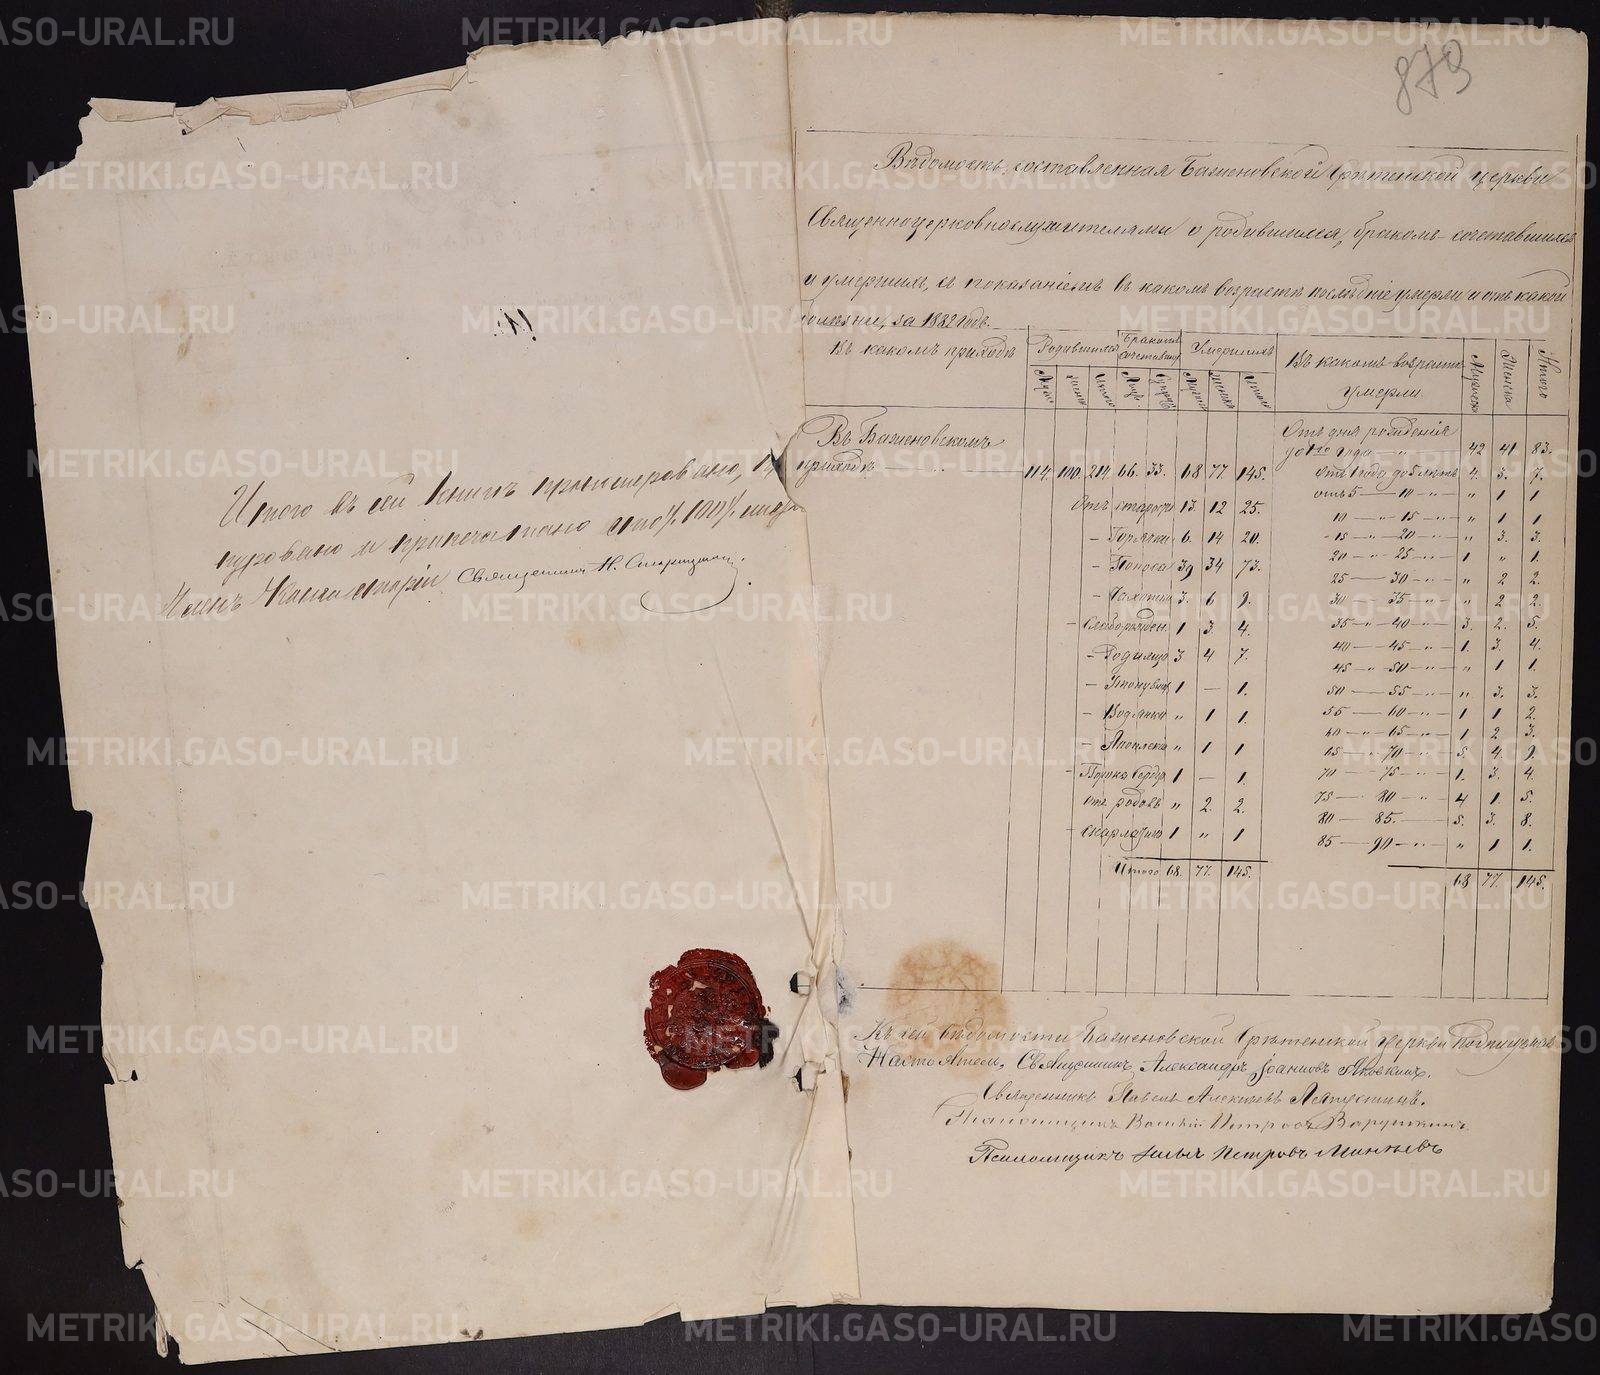 879
Вѣдомость, составленная Баженовской Срѣтенской церкви
Священноцерковнослужителями о родившихся, бракомъ-сочетавшихся
и умершихъ, съ показаніемъ въ какомъ возрастѣ послѣдніе умерли и отъ какой
болѣзни, за 1882 годъ.
Въ какомъ приходѣ Родившихся Бракомъ сочетавш. Умершихъ Въ какомъ возрастѣ умерли. Мужеска Женска Итого
Мужс Женска Итого Лицъ Супруж Мужеска Женска Итого
Въ Баженовскомъ
приходѣ 114. 100. 214. 66. 33. 68 77. 145.
Отъ старости 13. 12 25.
– Горячки 6. 14 20.
– Поноса 39 34 73.
– Чахотки 3. 6 9.
– Слаборожден. 1 3. 4.
– Родимца 3 4 7.
– Утонувш 1 — 1.
– Водянки „ 1 1.
– Апоплека „ 1 1
– Порока сердца 1 — 1.
отъ родовъ „ 2. 2.
– скарлатины 1 „ 1
Итого 68. 77. 145.
Отъ дня рожденія
до 1го года 42 41 83.
отъ 1 года до 5 лѣтъ 4. 3. 7.
отъ 5 — 10 „ 1 1
10 — 15 „ 1 1
15 — 20 „ 3. 3.
20 — 25 1 „ 1.
25 — 30 „ 2 2.
30 — 35 „ 2 2.
35 — 40 3. 2. 5.
40 — 45 1. 3. 4.
45 — 50 „ 1 1.
50 — 55 „ 3. 3.
55 — 60 1 1 2.
60 — 65 1 2 3.
65 — 70 5. 4. 9.
70 — 75 1. 3. 4.
75 — 80 4 1. 5.
80 — 85. 5. 3. 8.
85 — 90 „ 1 1.
68 77. 145.
Къ сей вѣдомости Баженовской Срѣтенской церкви Подписуемся
Настоятель, Священникъ Александръ Іоанновъ Яковкинъ.
Священникъ Павелъ Алексѣевъ Ляпустинъ.
Псаломщикъ Петровъ
Псаломщикъ Илья Петровъ
Итого въ сей книгѣ пронумеровано,
нуровано и припечатано сто /100/ листо
Членъ Консисторіи Священникъ Н.
METRIKI.GASO-URAL.RU